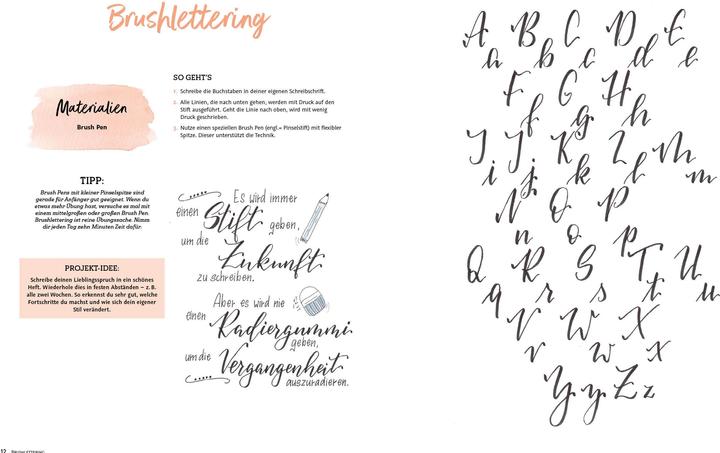 Brushlettering
Materialien
Brush Pen
TIPP:
Brush Pens mit kleiner Pinselspitze sind
gerade für Anfänger gut geeignet. Wenn du
etwas mehr Übung hast, versuche es mal mit
einem mittelgroßen oder großen Brush Pen.
Brushlettering ist reine Übungssache. Nimm
dir jeden Tag zehn Minuten Zeit dafür.
PROJEKT-IDEE:
Schreibe deinen Lieblingsspruch in ein schönes
Heft. Wiederhole dies in festen Abständen – z. B.
alle zwei Wochen. So erkennst du sehr gut, welche
Fortschritte du machst und wie sich dein eigener
Stil verändert.
SO GEHT'S
1. Schreibe die Buchstaben in deiner eigenen Schreibschrift.
2. Alle Linien, die nach unten gehen, werden mit Druck auf den
Stift ausgeführt. Geht die Linie nach oben, wird mit wenig
Druck geschrieben.
3. Nutze einen speziellen Brush Pen (engl.= Pinselstift) mit flexibler
Spitze. Dieser unterstützt die Technik.
Es wird immer
einen Stift geben,
um die
Zukunft
zu schreiben.
Aber es wird nie
einen
Radiergummi
geben,
um die Vergangenheit
auszuradieren.
12
A B C D E
a b c d e
F G H
f g h
I J K L M
i j k l m
N O P
n o p
Q R S T U
q r s t u
V W X
v w x
Y y Z z